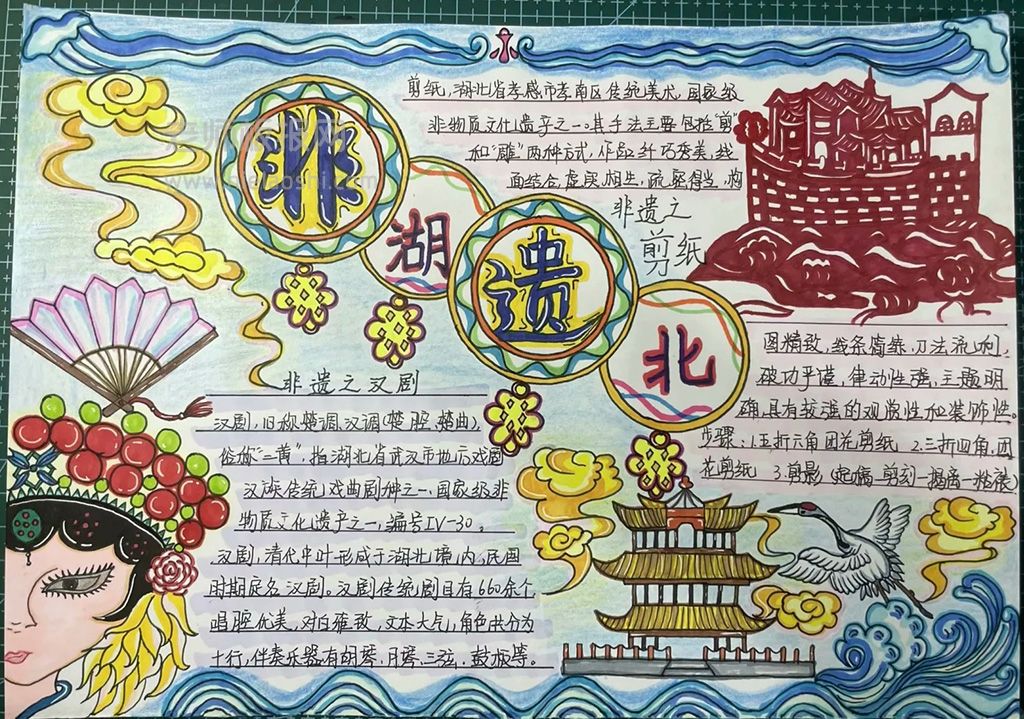 非
湖
遗
北
剪纸,湖北省孝感市孝南区传统美术,国家级
非物质文化遗产之一。其手法主要包括"剪"
和"雕"两种方式,作品纤巧秀美,线
面结合,虚实相生,疏密得当,构
非遗之
剪纸
图精致,线条简练,刀法流利,
破功严谨,律动性强,主题明
确,具有较强的观赏性和装饰性。
步骤:1.五折六角团花剪纸 2.三折四角团
花剪纸 3.剪影(起稿—剪刻—揭离—粘裱)
非遗之汉剧
汉剧,旧称楚调、汉调(楚腔、楚曲),
俗称"二黄",指湖北省武汉市地方戏剧
汉族传统戏曲剧种之一,国家级非
物质文化遗产之一,编号IV-30。
汉剧,清代中叶形成于湖北境内,民国
时期定名汉剧。汉剧传统剧目有660余个
唱腔优美,对白雅致,文本大气,角色共分为
十行,伴奏乐器有胡琴,月琴,三弦,鼓板等。